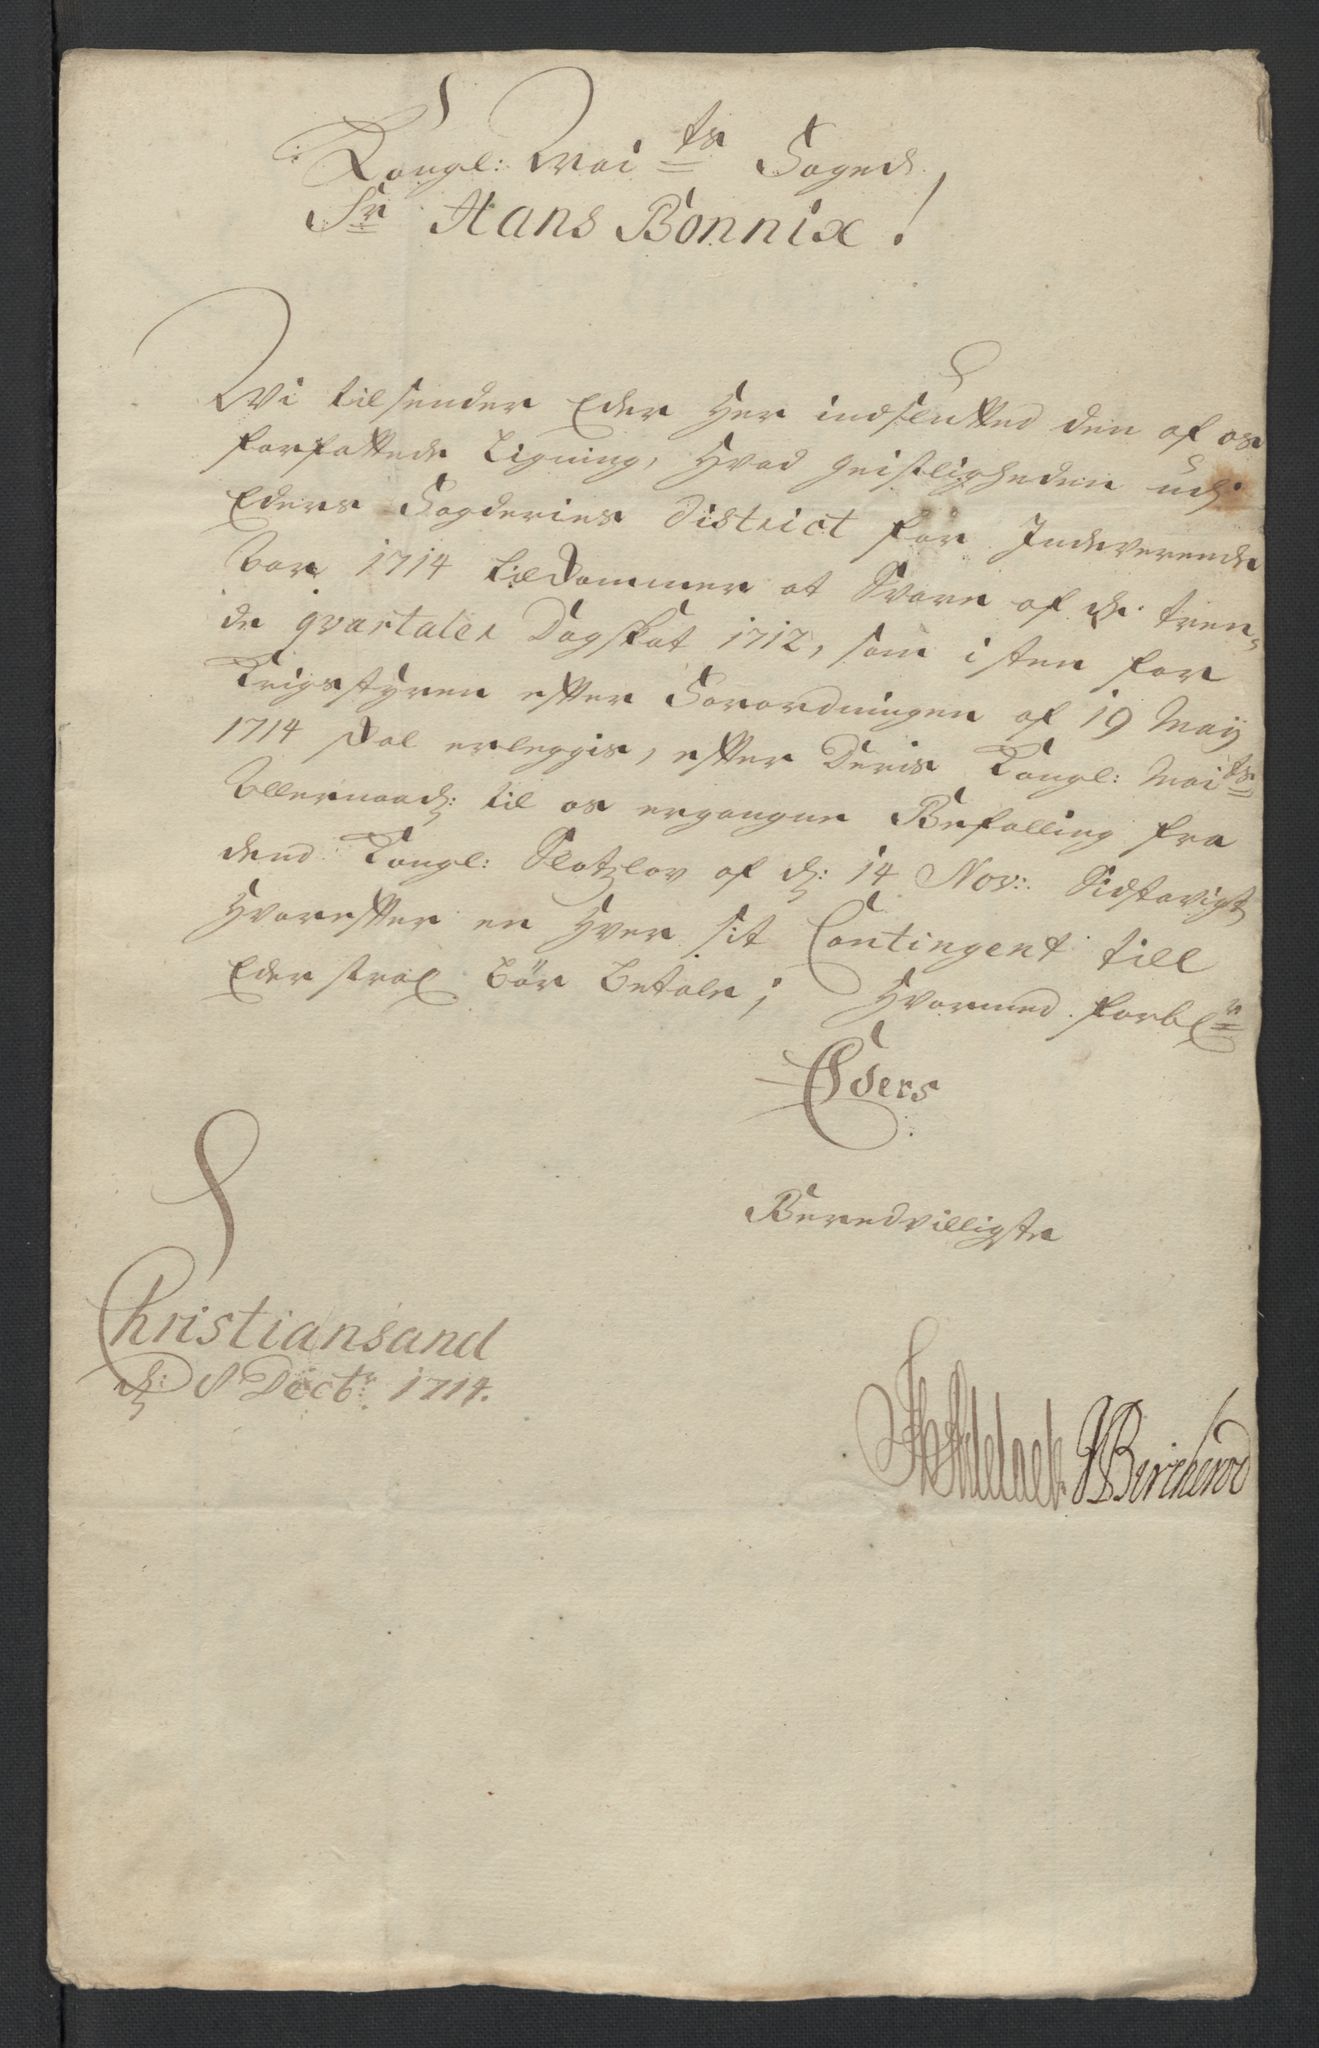 Kongl: Mai^ts Foged,
Sr Hans Bonnix!
Wi tilsender Eder her indslutted den af os
forfattede Ligning, hvad geistligheden udj
Eders Fogderies District for Indeverende
Aar 1714 tilkommer at Svare af de tven-
de qvartaler Dagskat 1712, som isten for
Krigsstyren efter Forordningen af 19 Maÿ
1714 skal erleggis, efter Deris Kongl: Mai^ts
Allernaad: til os ergangne Befalling fra
dend Kongl: Slotzlov af d: 14 Nov: Sidstavigt,
hvorefter en hver sit Contingent till
Eder strax bör betale; hvormed forbl^r
Eders
Beredvilligste
Christiansand
d: 8 Dectr. 1714.
Adelaer JBircherod